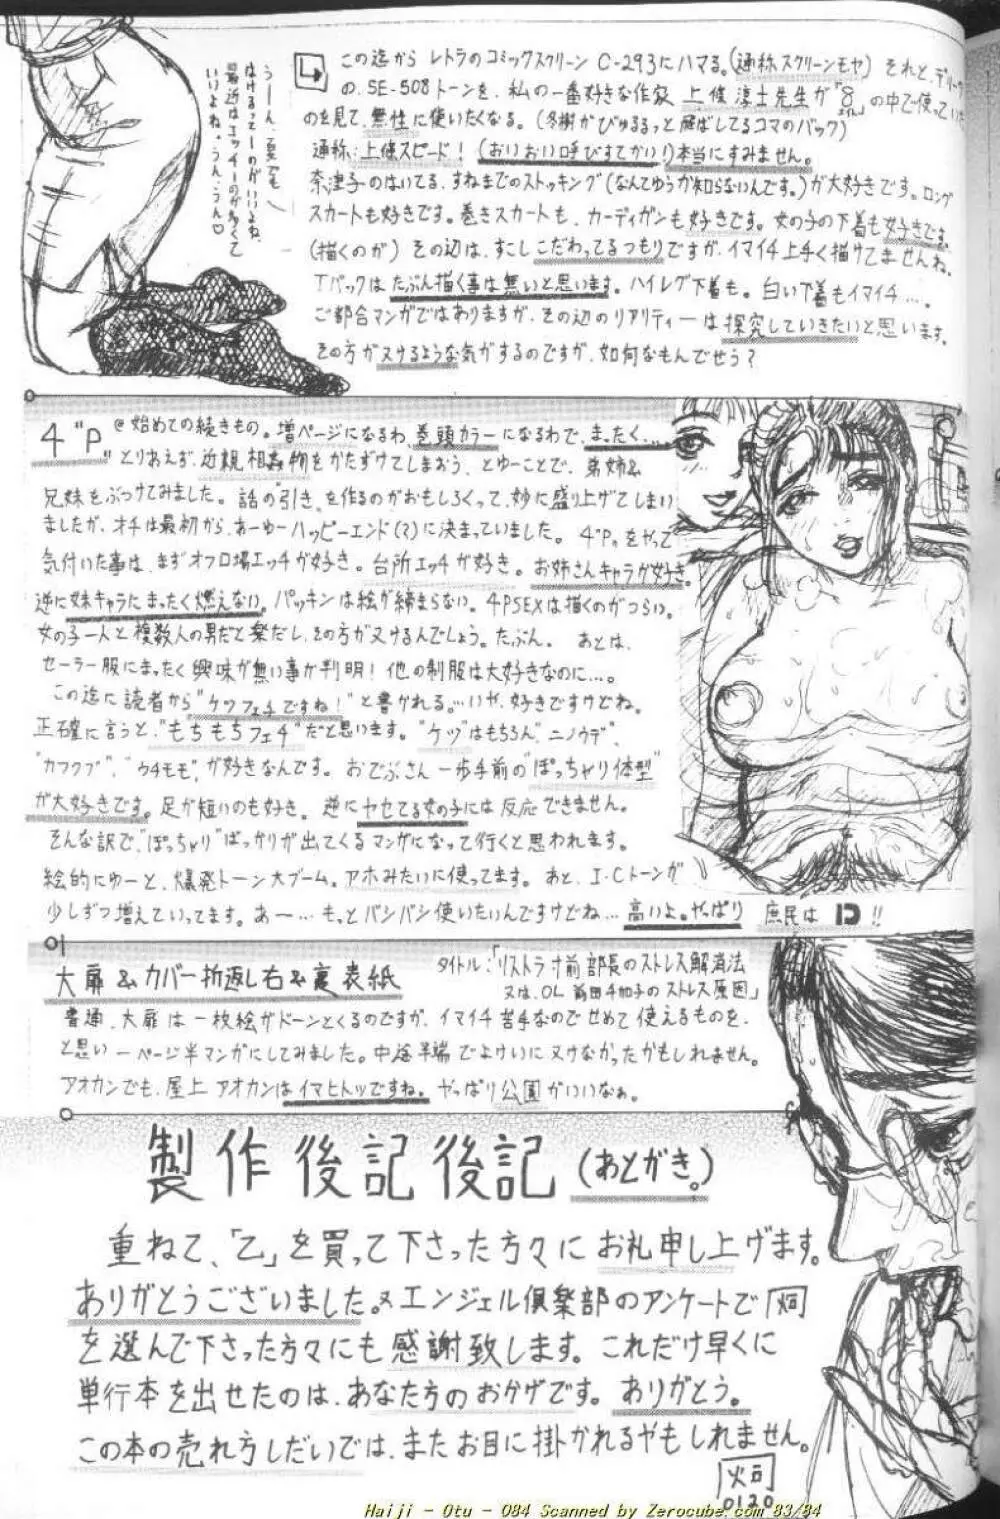 この迄から レトラのコミックスクリーン C-293にハマる。(通称スクリーンモヤ) それと、デリータ
の、SE-508トーンを、私の一番好きな作家 上條淳士先生が『8』の中で使っていた
のを見て、無性に使いたくなる。(冬樹がびゅるるっと 飛ばしてるコマのバック)
通称:上條スピード! (おいおい呼びすてかい!)本当にすみません。
奈津子のはいてる、すねまでのストッキング(なんてゆうか知らないんです。)が大好きです。ロング
スカートも好きです。巻きスカートも、カーディガンも好きです。女の子の下着も好きです。
(描くのが) その辺は、すこしこだわってるつもりですが、イマイチ上手く描けてませんね。
Tバックは たぶん描く事は無いと思います。ハイレグ下着も。白い下着もイマイチ…。
ご都合マンガではありますが、その辺のリアリティーは探究していきたいと思います。
その方がヌけるような気がするのですが、如何なもんでせう?
うーん、夏でも
はけるってーのがいいよね、
最近はエッチーのが多くて
いいよね。うん、うん♡
4"P" @始めての続きもの。増ページになるわ、巻頭カラーになるわで、まったく…
とりあえず、近親相姦物をかたずけてしまおう、とゆーことで、弟姉&
兄妹をぶつけてみました。話の"引き"を作るのがおもしろくって、妙に盛り上げてしまい
ましたが、オチは最初から、あーゆーハッピーエンド(?)に決まっていました。4"P"をやって
気付いた事は、まずオフロ場エッチが好き。台所エッチが好き。お姉さんキャラが好き。
逆に妹キャラにまったく燃えない。パッキンは絵が締まらない。4PSEXは描くのがつらい。
女の子一人と複数人の男だと楽だし、その方がヌけるんでしょう。たぶん。 あとは、
セーラー服にまったく興味が無い事が判明! 他の制服は大好きなのに…。
この迄に読者から"ケツフェチですね!"と書かれる。…いや、好きですけどね。
正確に言うと、"もちもちフェチ"だと思います。"ケツ"はもちろん、"ニノウデ"、
"カフクブ"、"ウチモモ"、が好きなんです。おでぶさん一歩手前の"ぽっちゃり体型"
が大好きです。足が短いのも好き。逆にヤセてる女の子には反応できません。
そんな訳で、"ぽっちゃり"ばっかりが出てくるマンガになって行くと思われます。
絵的にゆーと、爆発トーン大ブーム。アホみたいに使ってます。あと、I・Cトーンが
少しずつ増えていってます。あー…もっとバシバシ使いたいんですけどね… 高いよ。やっぱり 庶民は !!
01
大扉&カバー折返し右&裏表紙 タイトル:「リストラ寸前部長のストレス解消法
又は、OL 前田千加子のストレス原因」
普通、大扉は一枚絵がドーンとくるのですが、イマイチ苦手なのでせめて使えるものを、
と思い一ページ半マンガにしてみました。中途半端でよけいにヌけなかったかもしれません。
アオカンでも、屋上アオカンはイマヒトツですね。やっぱり公園がいいなぁ。
製作後記後記(あとがき。)
重ねて、「乙」を買って下さった方々にお礼申し上げます。
ありがとうございました。又エンジェル倶楽部のアンケートで
を選んで下さった方々にも感謝致します。これだけ早くに
単行本を出せたのは、あなた方のおかげです。ありがとう。
この本の売れ方しだいでは、またお目に掛かれるやもしれません。
0120
Haiji - Otu - 084 Scanned by Zerocube.com 83/84